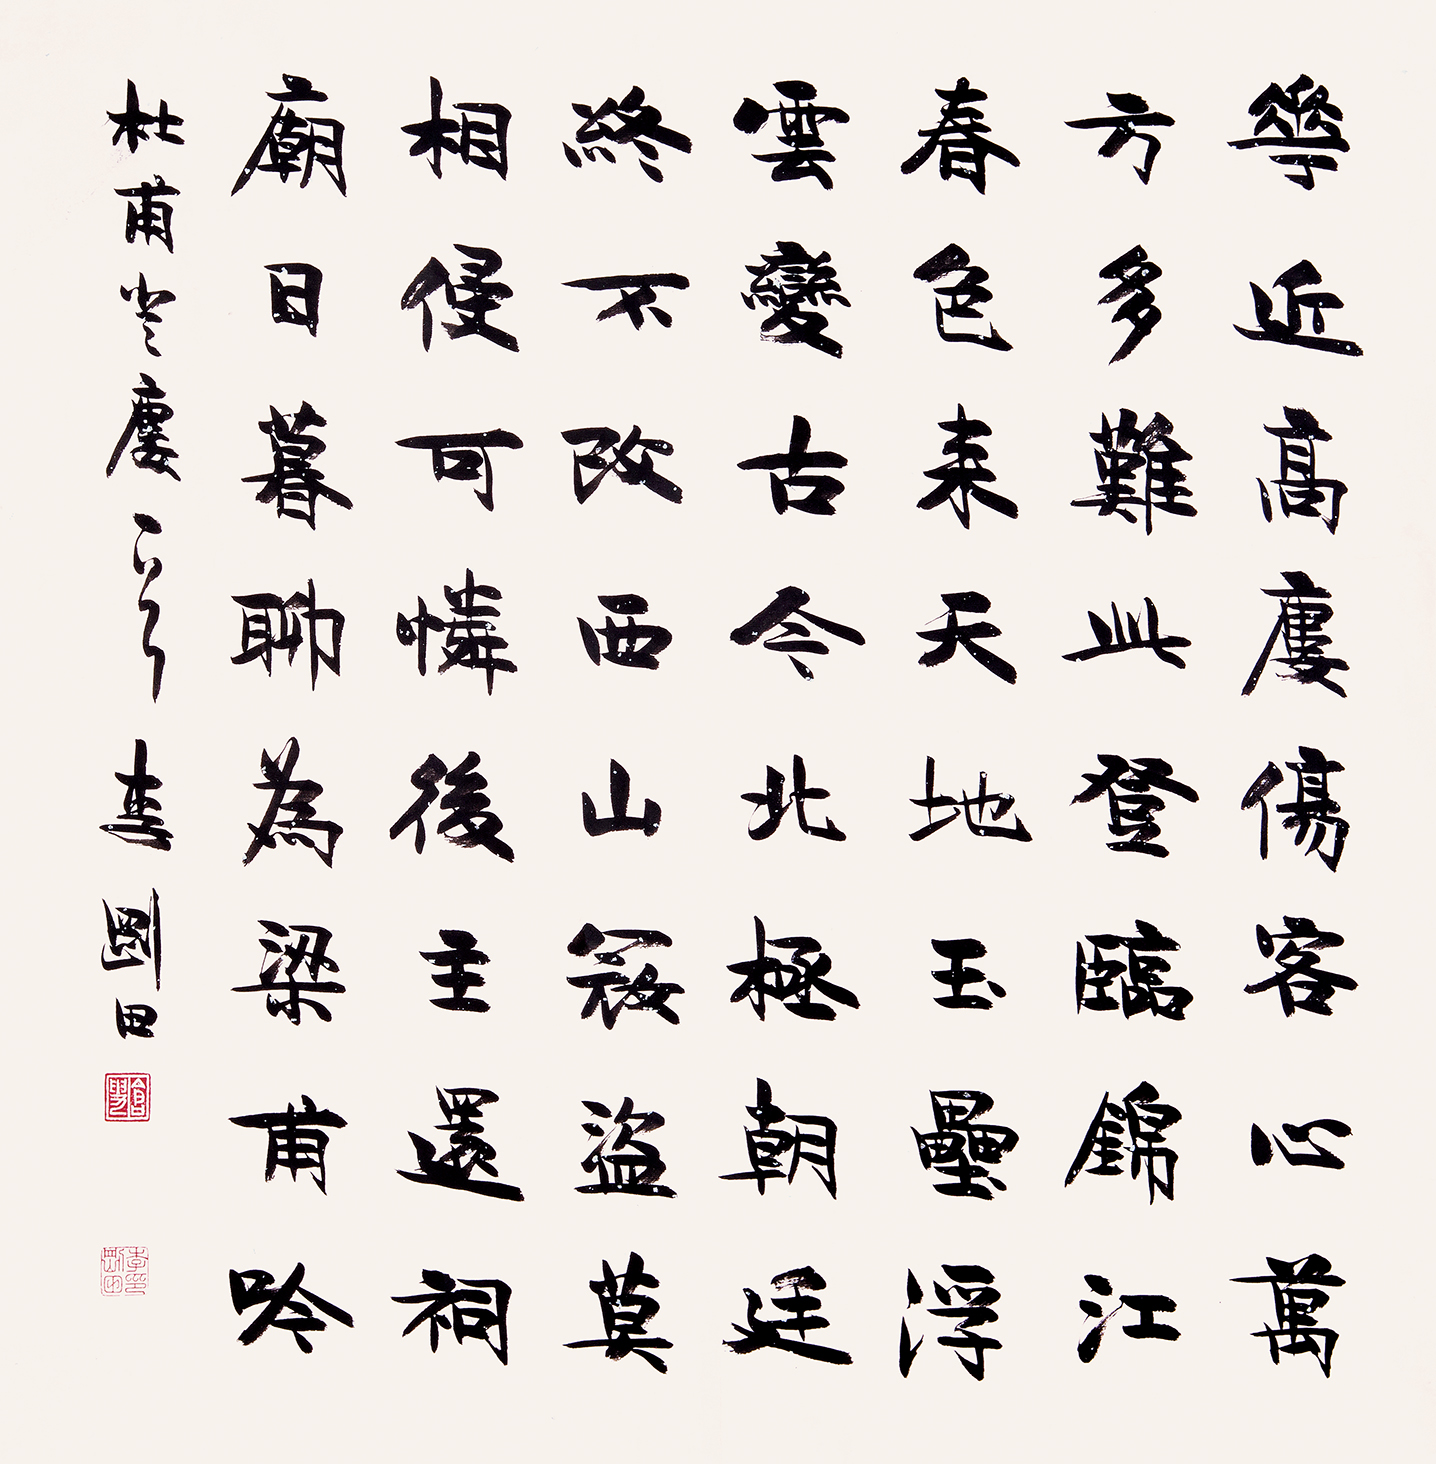 華近高廔傷客心萬
方多難此登臨錦江
春色来天地玉壘浮
雲變古今北極朝廷
終不改西山寇盜莫
相侵可憐後主還祠
廟日暮聊為梁甫吟
杜甫登廔一首 李剛田
李印剛田